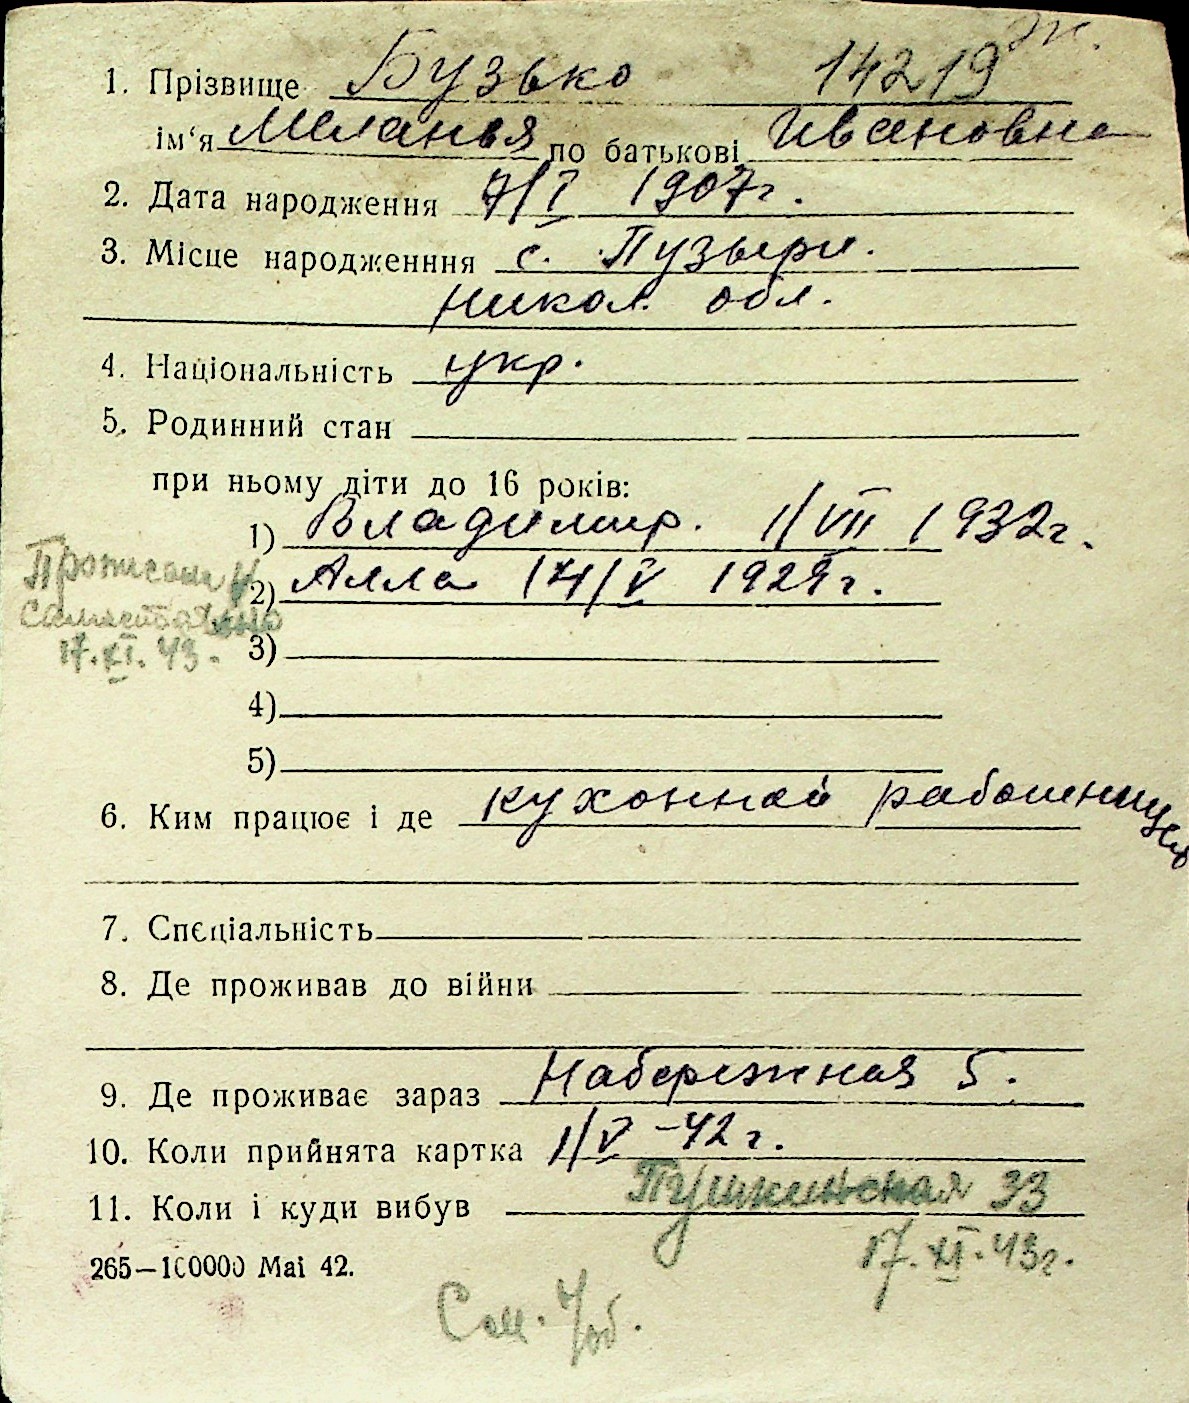 ж.
1. Прізвище Бузько 14219
ім'я Меланья по батькові Ивановна
2. Дата народження 7/I 1907г.
3. Місце народженння с. Пузыри.
Никол. обл.
4. Національність укр.
5. Родинний стан
при ньому діти до 16 років:
1) Владимир. 1/VII 1932г.
2) Алла 14/V 1929г.
Прописан
самостоятельно
17.XI.43.
3)
4)
5)
6. Ким працює і де кухонной работницей
7. Спєціальність
8. Де проживав до війни
9. Де проживає зараз Набережная 5.
10. Коли прийнята картка 1/V-42г.
11. Коли і куди вибув Пушкинская 33
17.XI.43г.
265—100000 Mai 42.